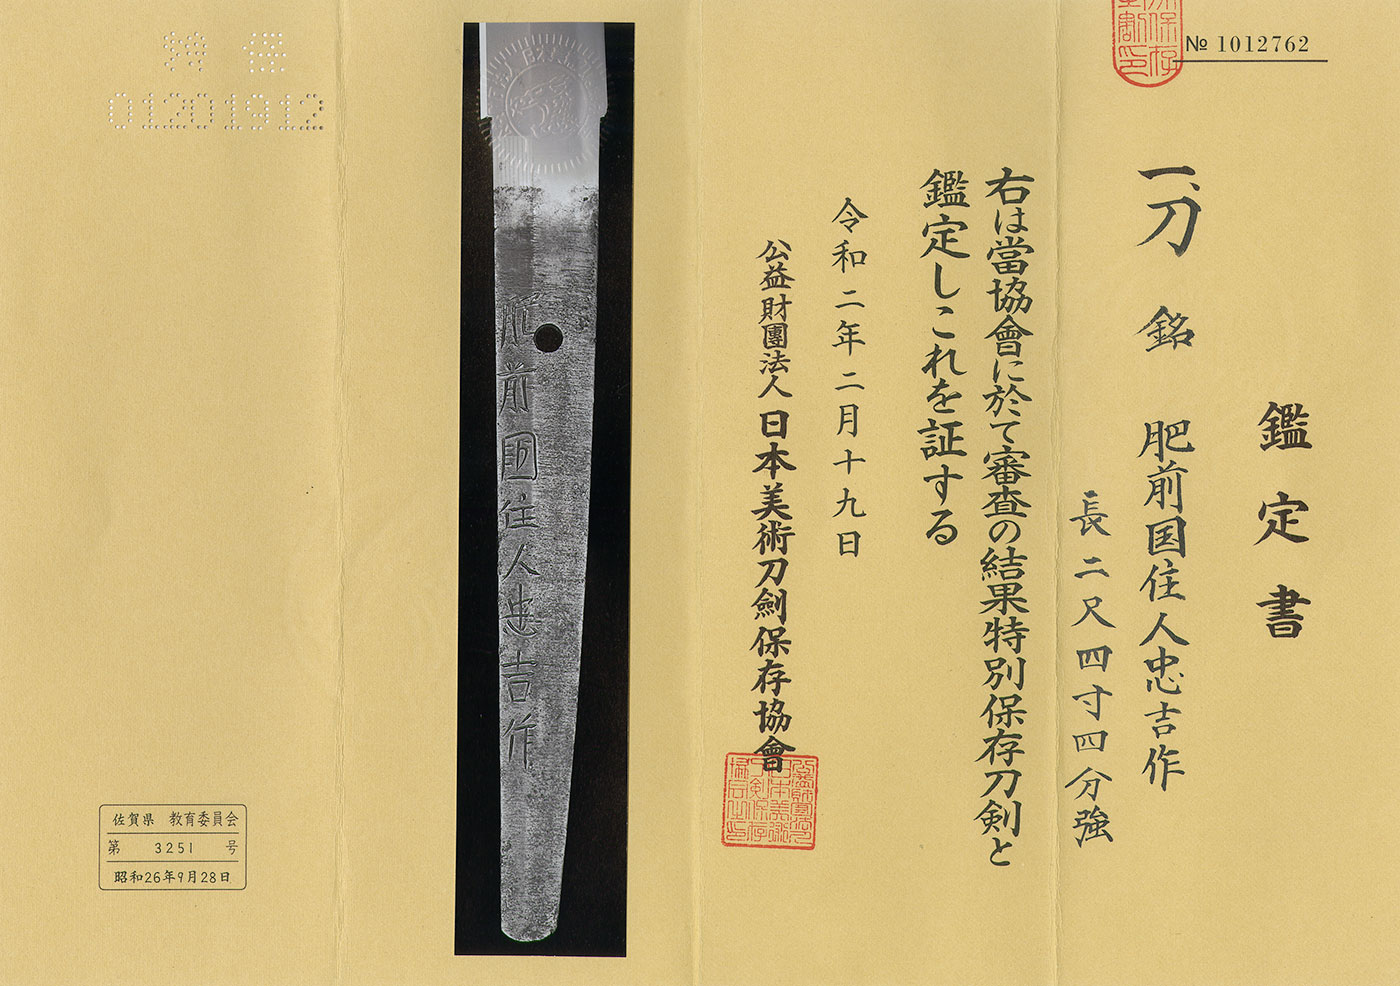 № 1012762
鑑定書
一、刀 銘 肥前国住人忠吉作
長二尺四寸四分強
右は當協會に於て審査の結果特別保存刀剣と
鑑定しこれを証する
令和二年二月十九日
公益財團法人日本美術刀劍保存協會
肥前國住人忠吉作
特保
01201912
佐賀県 教育委員会
第 3251 号
昭和26年9月28日